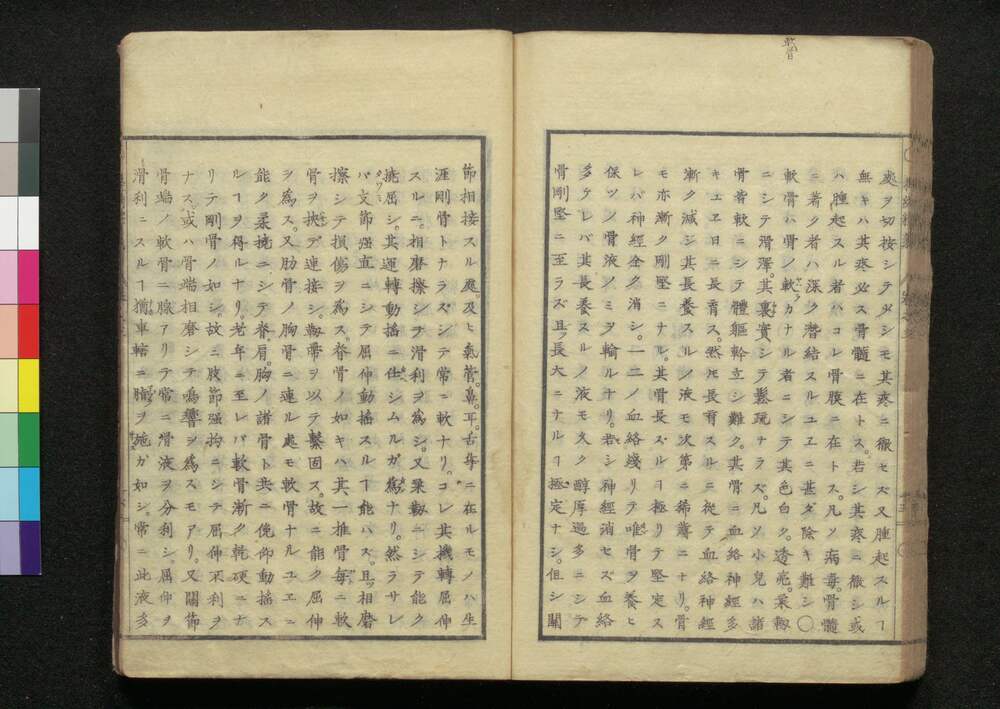 軟骨
處ヲ切按シテ少シモ其疼ニ徹セズ又腫起スルヿ
無キハ其疼必ス骨髓ニ在トス。若シ其疼ニ徹シ或
ハ腫起スル者ハコレ骨膜ニ在トス。凡ソ病毒。骨髓
ニ著ク者ハ深ク潜結スルユヱニ甚ダ除キ難シ○
軟骨ハ骨ノ軟カナル者ニシテ其色白ク。透亮。柔軔
ニシテ滑澤。其裏實シテ鬆疏ナラズ。凡ソ小兒ハ諸
骨皆軟ニシテ體軀幹立シ難ク。其骨ニ血絡神經多
キユヱ日ニ長育ス。然𪜈長育スルニ從テ血絡神經
漸ク減シ其長養スルノ液モ次第ニ稀薄ニナリ。骨
モ亦漸ク剛堅ニナル。其骨長スルヿ極リテ堅定ス
レバ神經全ク消シ。一二ノ血絡殘リテ唯骨ヲ養ヒ
保ツノ骨液ノミヲ輸ルナリ。若シ神經消セズ血絡
多ケレバ其長養スルノ液モ又ク醇厚過多ニシテ
骨剛堅ニ至ラズ且ツ長。大ニナルヿ極定ナシ。但シ關
節相接スル處。及ヒ氣管。鼻。耳。舌等ニ在ルモノハ生
涯剛骨トナラズシテ常ニ軟ナリ。コレ其機轉屈伸
スルニ。相磨擦シテ滑利ヲ為シ。又柔軔ニシテ能ク
撓屈シ。其運轉動搖ニ任シムルガ為ナリ。然ラサレ
バ支節强直ニシテ屈伸動搖スルヿ能ハス。且。相磨
擦シテ損傷ヲ為ス。脊骨ノ如キハ其一推骨每ニ軟
骨ヲ挾デ連接シ。軔帶ヲ以テ繫固ス。故ニ能ク屈伸
ヲ為ス。又肋骨ノ胸骨ニ連ル處モ軟骨ナルユヱニ
能ク柔撓ニシテ脊。肩。胸ノ諸骨ト共ニ俛仰動搖ス
ルヿヲ得ルナリ。老年ニ至レバ軟骨漸ク乾硬ニナ
リテ剛骨ノ如シ。故ニ肢節强拘ニシテ屈伸不利ヲ
ナス。或ハ骨端相磨シテ鳴響ヲ為スモアリ。又關節
骨端ノ軟骨ニ腺アリテ常ニ滑液ヲ分利シ。屈伸ヲ
滑利ニスルヿ猶車轄ニ膓ヲ施ガ如シ。常ニ此液多